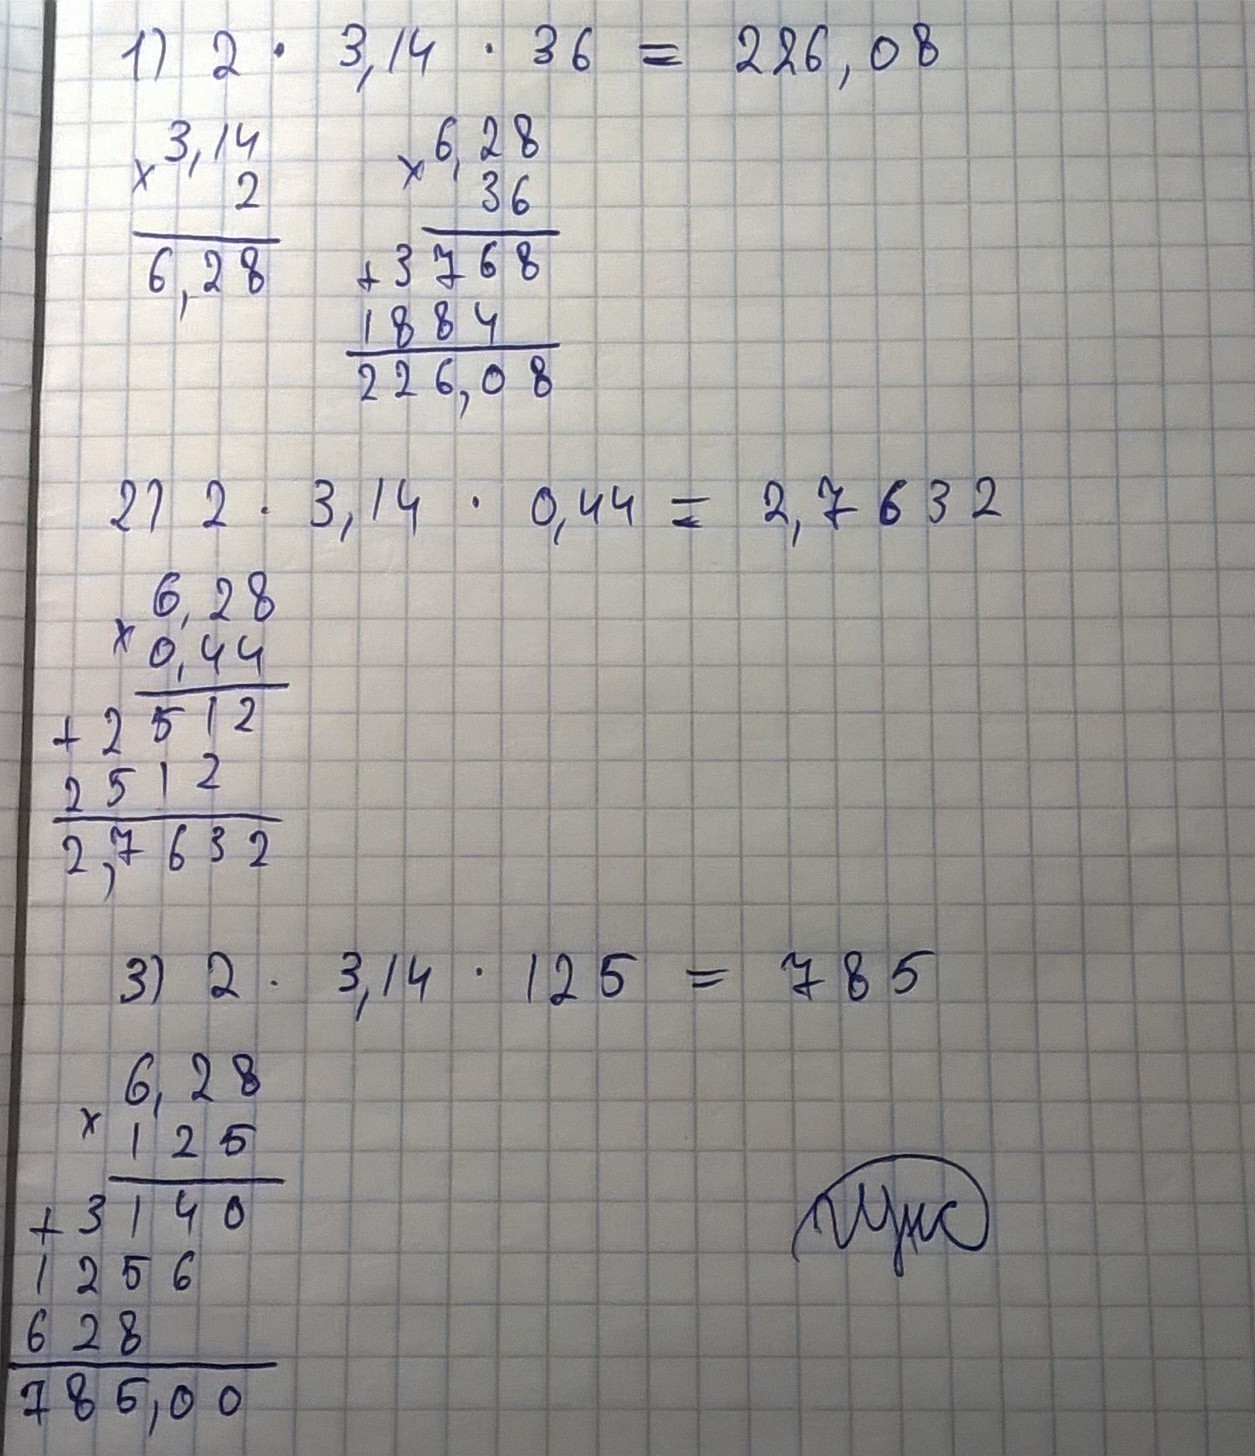 1) 2 · 3,14 · 36 = 226,08
3,14
× 2
6,28
6,28
× 36
+ 3768
1884
226,08
2) 2 · 3,14 · 0,44 = 2,7632
6,28
× 0,44
+ 2512
2512
2,7632
3) 2 · 3,14 · 125 = 785
6,28
× 125
+ 3140
1256
628
785,00